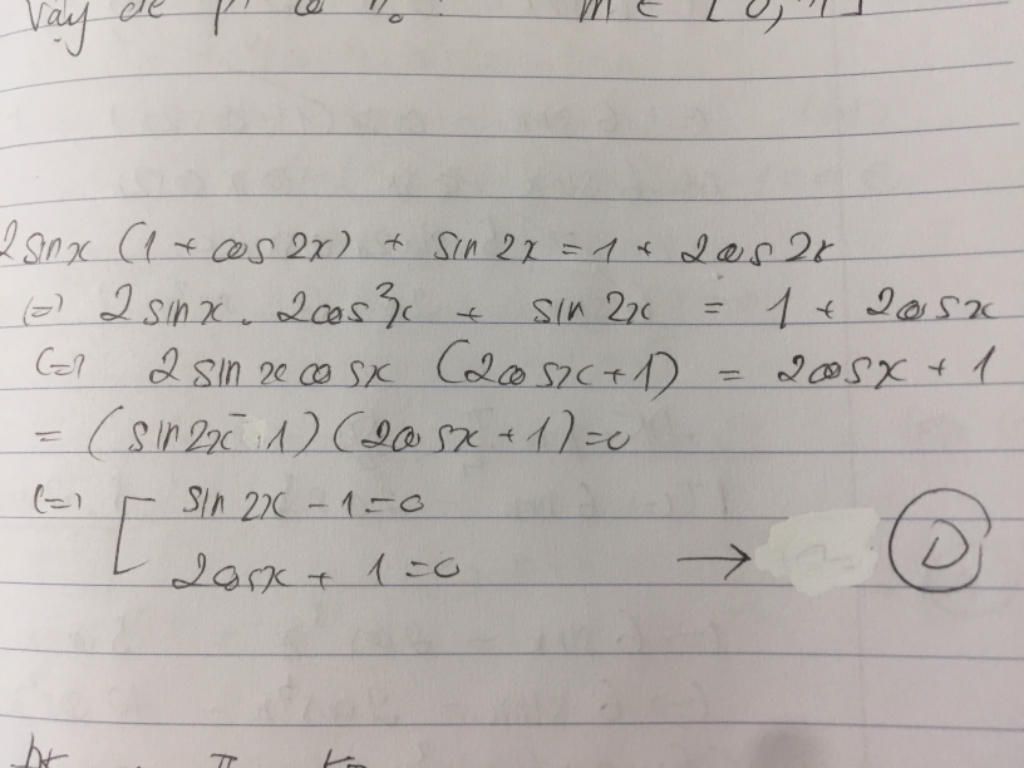 Vậy để pt có n₀ : m ∈ [0, 1]
2 sin x (1 + cos 2x) + sin 2x = 1 + 2 cos 2x
(=) 2 sin x . 2 cos²x + sin 2x = 1 + 2 cos x
(=) 2 sin x cos x (2 cos x + 1) = 2 cos x + 1
= (sin 2x - 1)(2 cos x + 1) = 0
(=) [ sin 2x - 1 = 0
2 cos x + 1 = 0 → D